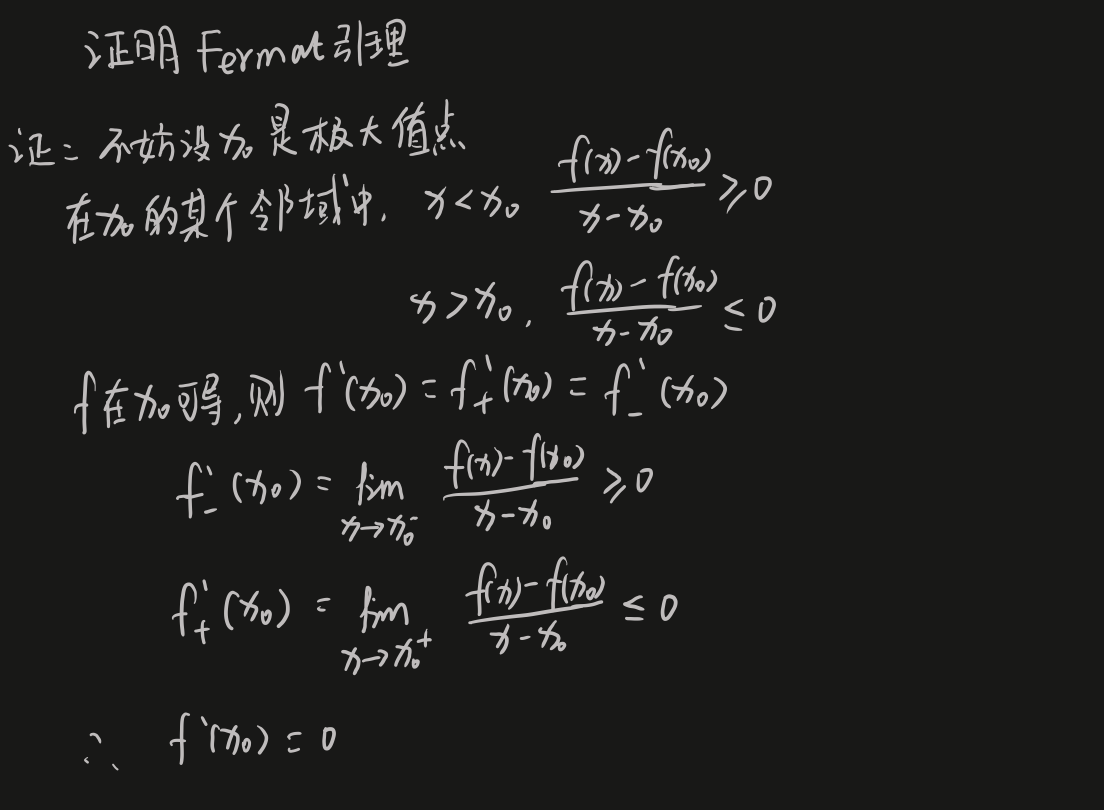 证明 Fermat 引理
证: 不妨设 x₀ 是极大值点
在 x₀ 的某个邻域中, x < x₀ (f(x) - f(x₀))/(x - x₀) ≥ 0
x > x₀, (f(x) - f(x₀))/(x - x₀) ≤ 0
f 在 x₀ 可导, 则 f'(x₀) = f'₊(x₀) = f'₋(x₀)
f'₋(x₀) = lim_{x→x₀⁻} (f(x) - f(x₀))/(x - x₀) ≥ 0
f'₊(x₀) = lim_{x→x₀⁺} (f(x) - f(x₀))/(x - x₀) ≤ 0
∴ f'(x₀) = 0